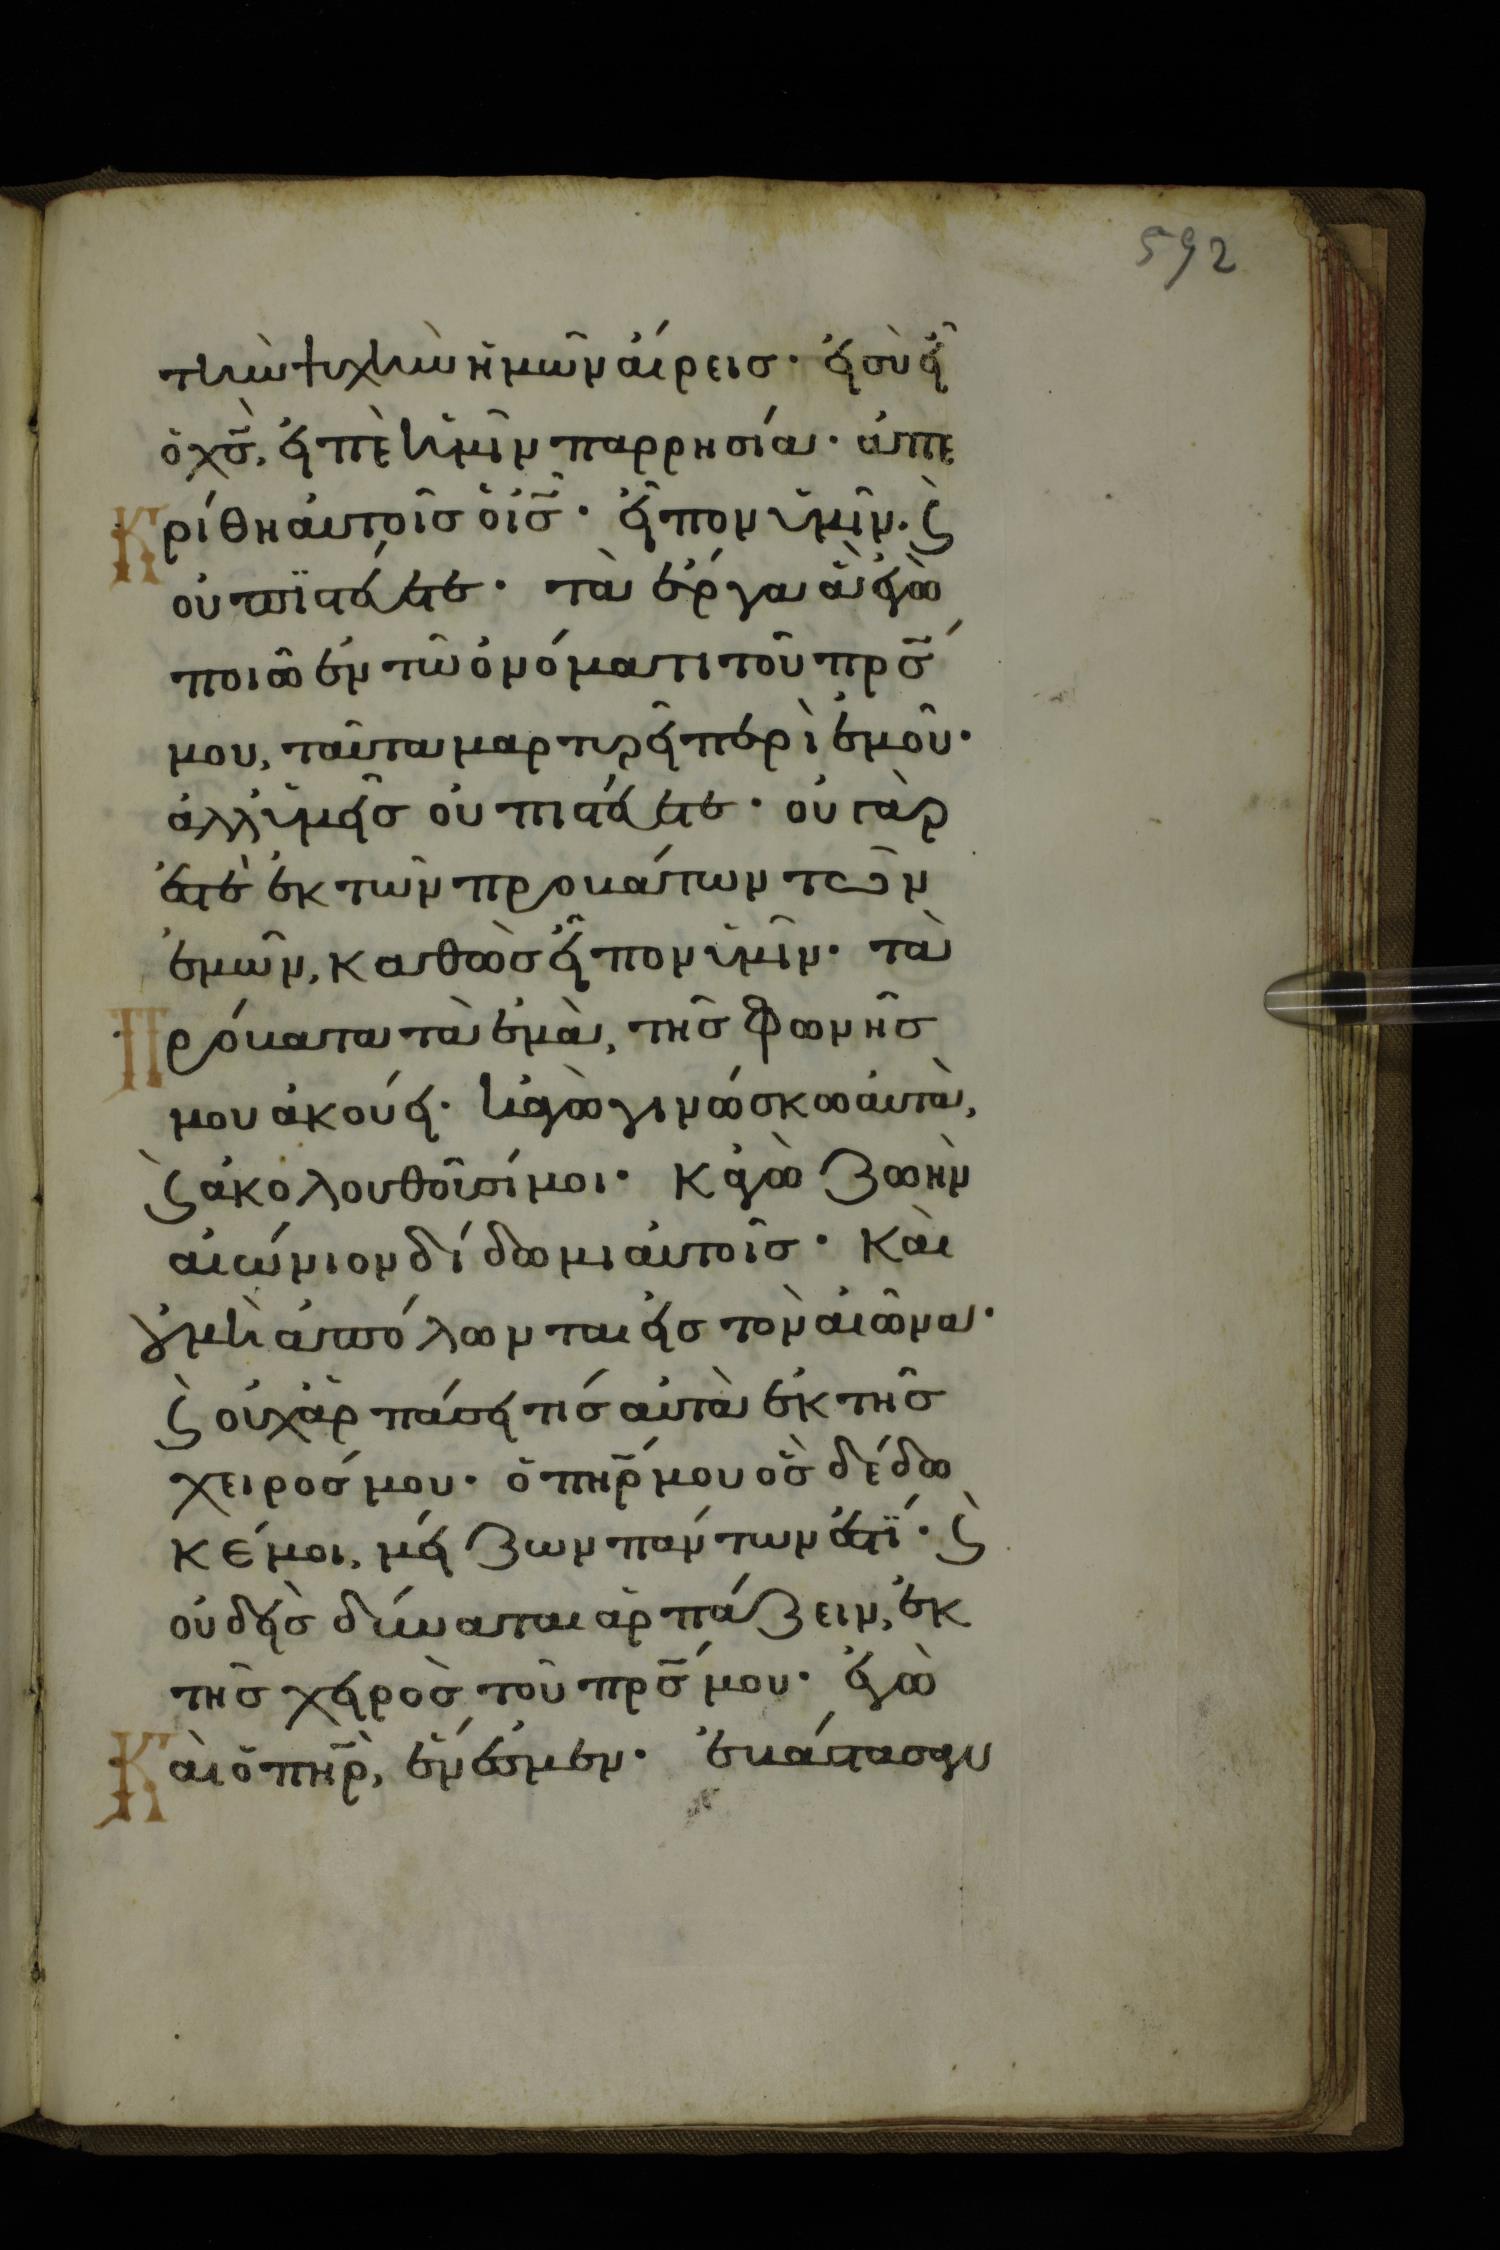 592
τὴν ψυχὴν ἡμῶν αἴρεις· εἰ σὺ εἶ
ὁ χ̅ς̅, εἰπὲ ἡμῖν παρρησία· ἀπε
κρίθη αὐτοῖς ὁ ι̅ς̅· εἶπον ὑμῖν. ϗ
οὐ πϊστεύετε· τὰ ἔργα ἃ ἐγὼ
ποιῶ ἐν τῶ ὀνόματι τοῦ π̅ρ̅ς̅
μου, ταῦτα μαρτυρεῖ περὶ ἐμοῦ·
ἀλλ' ὑμεῖς οὐ πιστεύετε· οὐ γάρ
ἐστὲ ἐκ τῶν προβάτων τῶν
ἐμῶν, καθὼς εἶπον ὑμῖν· τὰ
Πρόβατα τὰ ἐμὰ, τῆς φωνῆς
μου ἀκούει· κἀγὼ γινώσκω αὐτὰ,
ϗ ἀκολουθοῦσί μοι· κἀγὼ ζωὴν
αἰώνιον δίδωμι αὐτοῖς· καὶ
οὐ μὴ ἀπόλωνται εἰς τὸν αἰῶνα·
ϗ οὐχ ἁρπάσει τίς αὐτὰ ἐκ τῆς
χειρός μου· ὁ π̅η̅ρ̅ μου ὃς δέδω
κέ μοι, μείζων πάντων ἐστϊ· ϗ
οὐδεὶς δύναται ἁρπάζειν, ἐκ
τῆς χειρὸς τοῦ π̅ρ̅ς̅ μου· ἐγὼ
Καὶ ὁ π̅η̅ρ̅, ἕν ἐσμεν· ἐβάστασαν